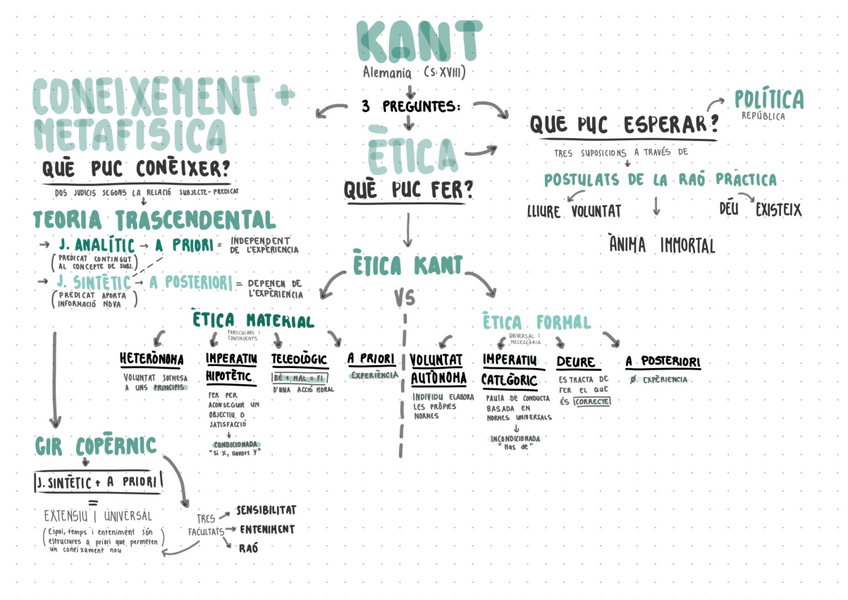 KANT
Alemania (S.XVIII)
3 PREGUNTES:
CONEIXEMENT +
METAFISICA
QUÈ PUC CONÈIXER?
DOS JUDICIS SEGONS LA RELACIÓ SUBJECTE-PREDICAT
TEORIA TRASCENDENTAL
→ J. ANALÍTIC → A PRIORI = INDEPENDENT
DE L'EXPERIÈNCIA
(PREDICAT CONTINGUT
AL CONCEPTE DE SUBJ.)
→ J. SINTÈTIC → A POSTERIORI = DEPENEN DE
L'EXPERIÈNCIA
(PREDICAT APORTA
INFORMACIÓ NOVA)
GIR COPÈRNIC
J. SINTÈTIC + A PRIORI
=
EXTENSIU I UNIVERSAL
(Espai, temps i enteniment són
estructures a priori que permeten
un coneixament nou)
TRES
FACULTATS
SENSIBILITAT
ENTENIMENT
RAÓ
ÈTICA
QUÈ PUC FER?
ÈTICA KANT
VS
ÈTICA MATERIAL
PARTICULARS I
CONTINGENTS
HETERÒNOMA
VOLUNTAT SOTMESA
A UNS PRINCIPIS
IMPERATIU
HIPOTÈTIC
FER PER
ACONSEGUIR UN
OBJECTIU O
SATISFACCIÓ
↓
CONDICIONADA
"Si X, llavors Y"
TELEOLÒGIC
BÉ + MAL = FI
D'UNA ACCIÓ MORAL
A PRIORI
EXPERIÈNCIA
ÈTICA FORMAL
UNIVERSAL I
NECESSÀRIA
VOLUNTAT
AUTÒNOMA
INDIVIDU ELABORA
LES PRÒPIES
NORMES
IMPERATIU
CATEGÒRIC
PAUTA DE CONDUCTA
BASADA EN
NORMES UNIVERSALS
↓
INCONDICIONADA
"Has de"
DEURE
ES TRACTA DE
FER EL QUE
ÉS CORRECTE
A POSTERIORI
Ø EXPERIÈNCIA
QUÈ PUC ESPERAR?
POLÍTICA
REPÚBLICA
TRES SUPOSICIONS A TRAVÉS DE
POSTULATS DE LA RAÓ PRÀCTICA
LLIURE VOLUNTAT
ÀNIMA IMMORTAL
DÉU EXISTEIX